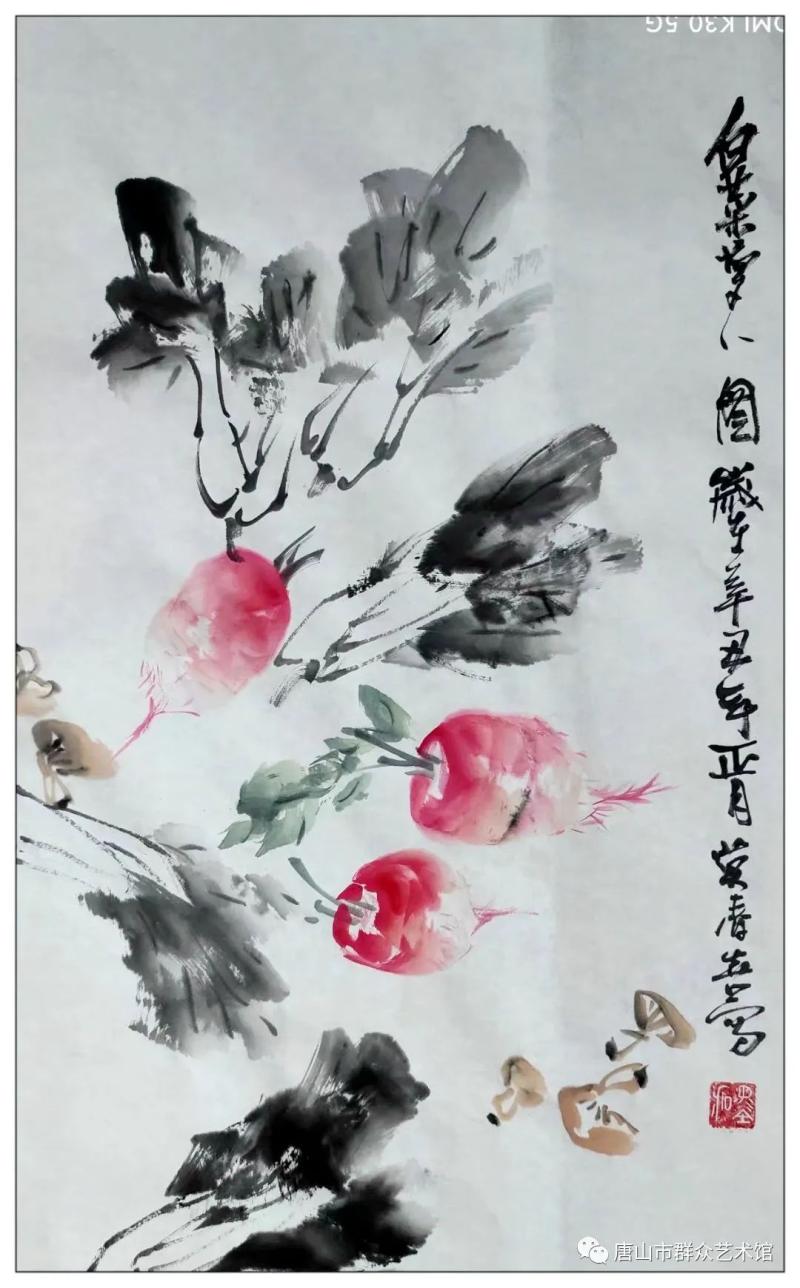 DMI K30 5G
白菜萝卜图 歲在辛丑年正月 春 写
唐山市群众艺术馆